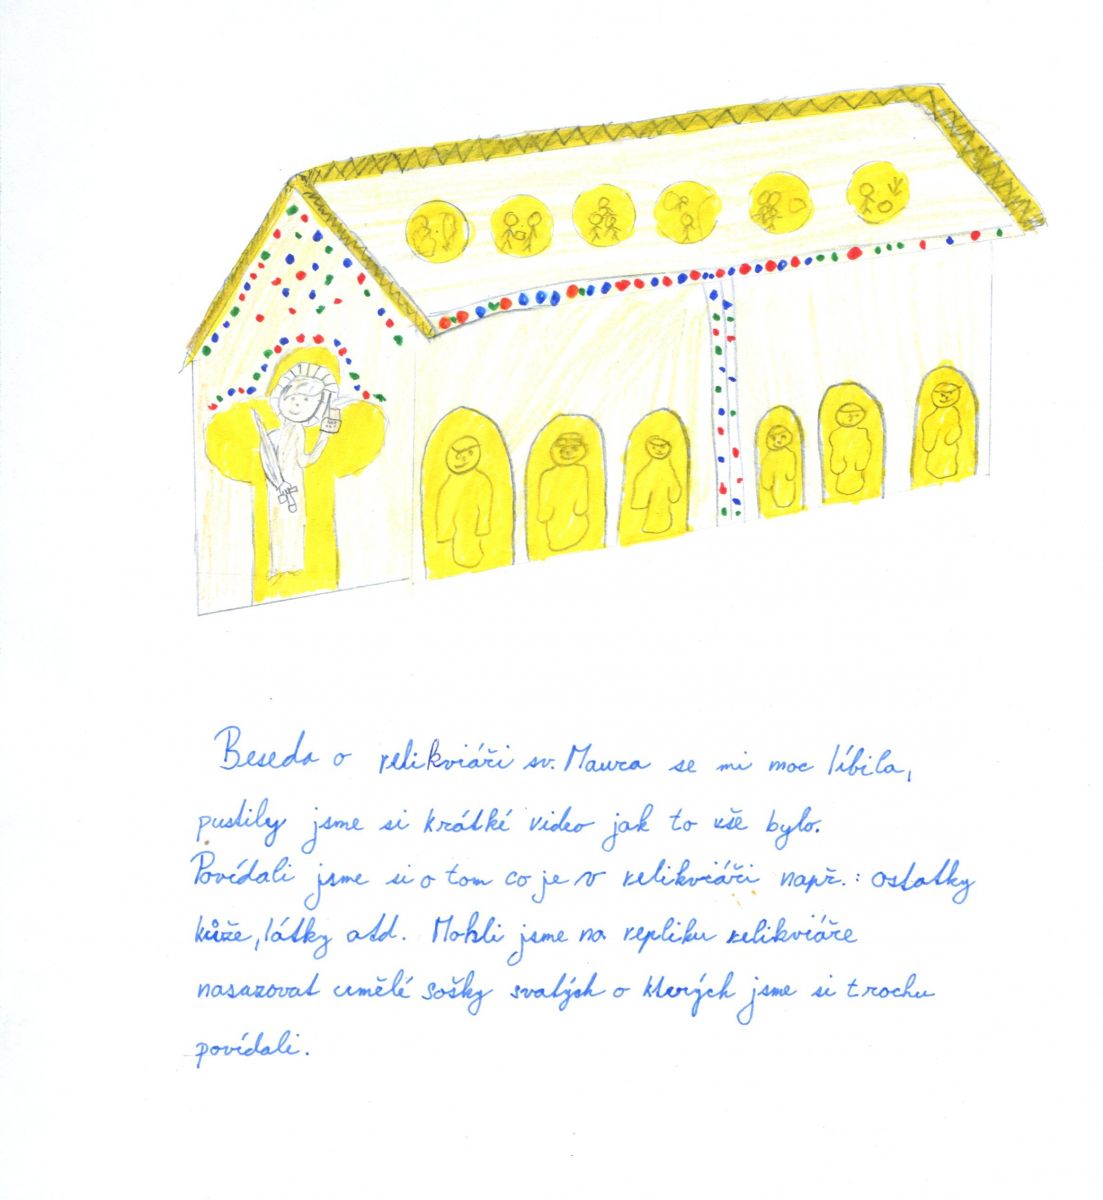 Beseda o relikviáři sv. Maura se mi moc líbila,
pustily jsme si krátké video jak to vše bylo.
Povídali jsme si o tom co je v relikviáři např.: ostatky
kůže, látky atd. Mohli jsme na repliku relikviáře
nasazovat umělé sošky svatých o kterých jsme si trochu
povídali.